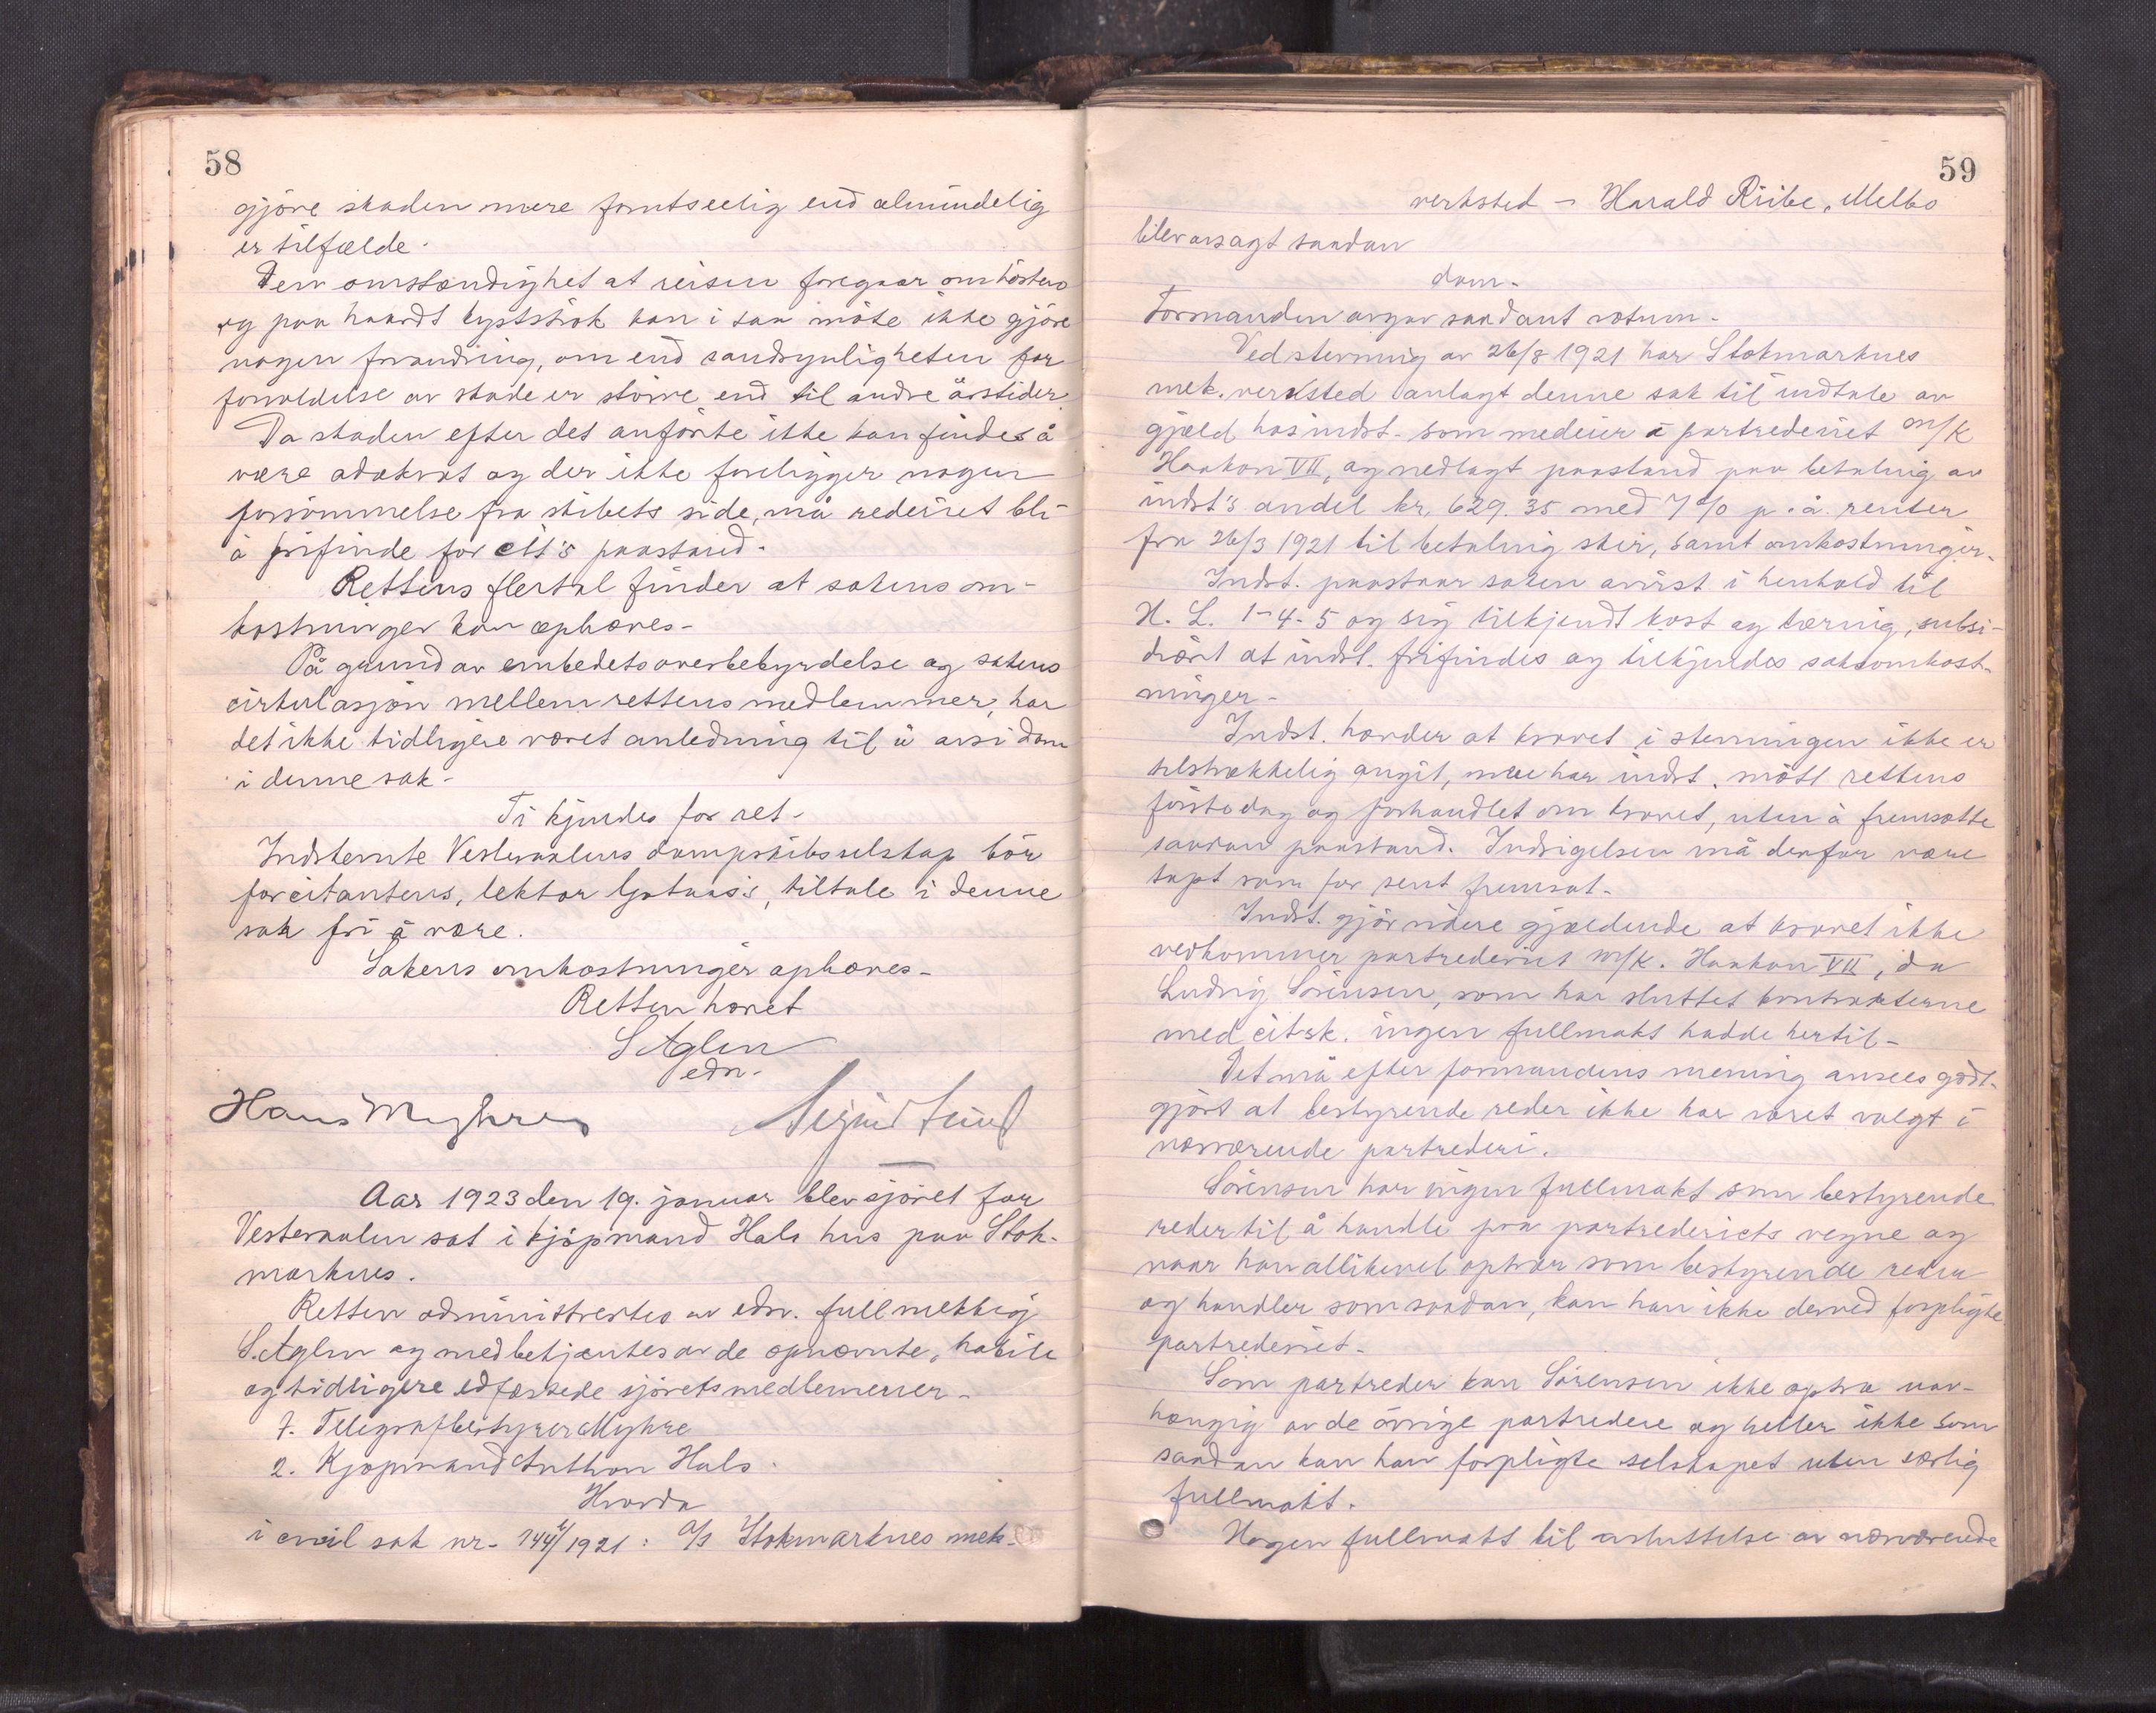 58
gjöre skaden mere forutseelig end almindelig
er tilfælde.
Den omstændighet at reisen foregaar om hösten
og paa haardt kystströk kan i saa möte ikke gjöre
nogen forandring, om end sandsynligheten for
forvoldelse av skade er större end til andre årstider.
Da skaden efter det anförte ikke kan findes å
være adækvat og der ikke foreligger nogen
forsömmelse fra skibets side, må rederiet bli
å frifinde for cit's paastand.
Rettens flertal finder at sakens om-
kostninger kan ophæves-
På grund av embedets overbebyrdelse og sakens
cirkulasjon mellem rettens medlemmer, har
det ikke tidligere været anledning til å avsi dom
i denne sak-
Ti kjendes for ret-
Indstevnte Vesteraalens dampskibsselskap bör
for citantens, lektor Gotaas's, tiltale i denne
sak fri å være.
Sakens omkostninger ophæves-
Retten hævet
S. Aglen
edn.
Hans Myhre Sigurd
Aar 1923 den 19. januar blev sjöret for
Vesteraalen sat i kjöpmand Hals hus paa Stok-
marknes.
Retten administrertes av edn. fullmektig
S. Aglen og medbetjentes av de opnævnte, habile
og tidligere edfæstede sjöretsmedlemmer-
1. Telegrafbestyrer Myhre
2. Kjöpmand Anthon Hals.
Hvorda
i civil sak nr. 144/1921: A/S Stokmarknes mek.
59
verksted - Harald Riibe, Melbo
blev avsagt saadan
dom-
Formanden avgav saadant votum-
Ved stevning av 26/8 1921 har Stokmarknes
mek. verksted anlagt denne sak til indtale av
gjæld hos indst. som medeier i partrederiet M/K
Haakon VII, og nedlagt paastand paa betaling av
indst's andel kr. 629.35 med 7% p.a. renter
fra 26/3 1921 til betaling skjer, samt omkostninger-
Indst. paastaar saken avvist i henhold til
N. L. 1-4-5 og sig tilkjendt kost og tæring, subsi-
diært at indst. frifindes og tilkjendes saksomkost-
ninger-
Indst. hævder at kravet i stevningen ikke er
tilstrækkelig angit, men har indst. mött rettens
förste dag og forhandlet om kravet, uten å fremsætte
saadan paastand. Indsigelsen må derfor være
tapt som for sent fremsat-
Indst. gjör videre gjældende at kravet ikke
vedkommer partrederiet M/K. Haakon VII, da
Ludvig Sörensen, som har sluttet kontrakterne
med citsk. ingen fullmakt hadde hertil-
Det må efter formandens mening ansees godt-
gjört at bestyrende reder ikke har været valgt i
nærværende partrederi.
Sörensen har ingen fullmakt som bestyrende
reder til å handle paa partrederiets vegne og
naar han allikevel optrær som bestyrende reder
og handler som saadan, kan han ikke derved forpligte
partrederiet-
Som partreder kan Sörensen ikke optræ uav-
hængig av de övrige partredere og heller ikke som
saadan kan han forpligte selskapet uten særlig
fullmakt.
Nogen fullmakt til avsluttelse av nærværende